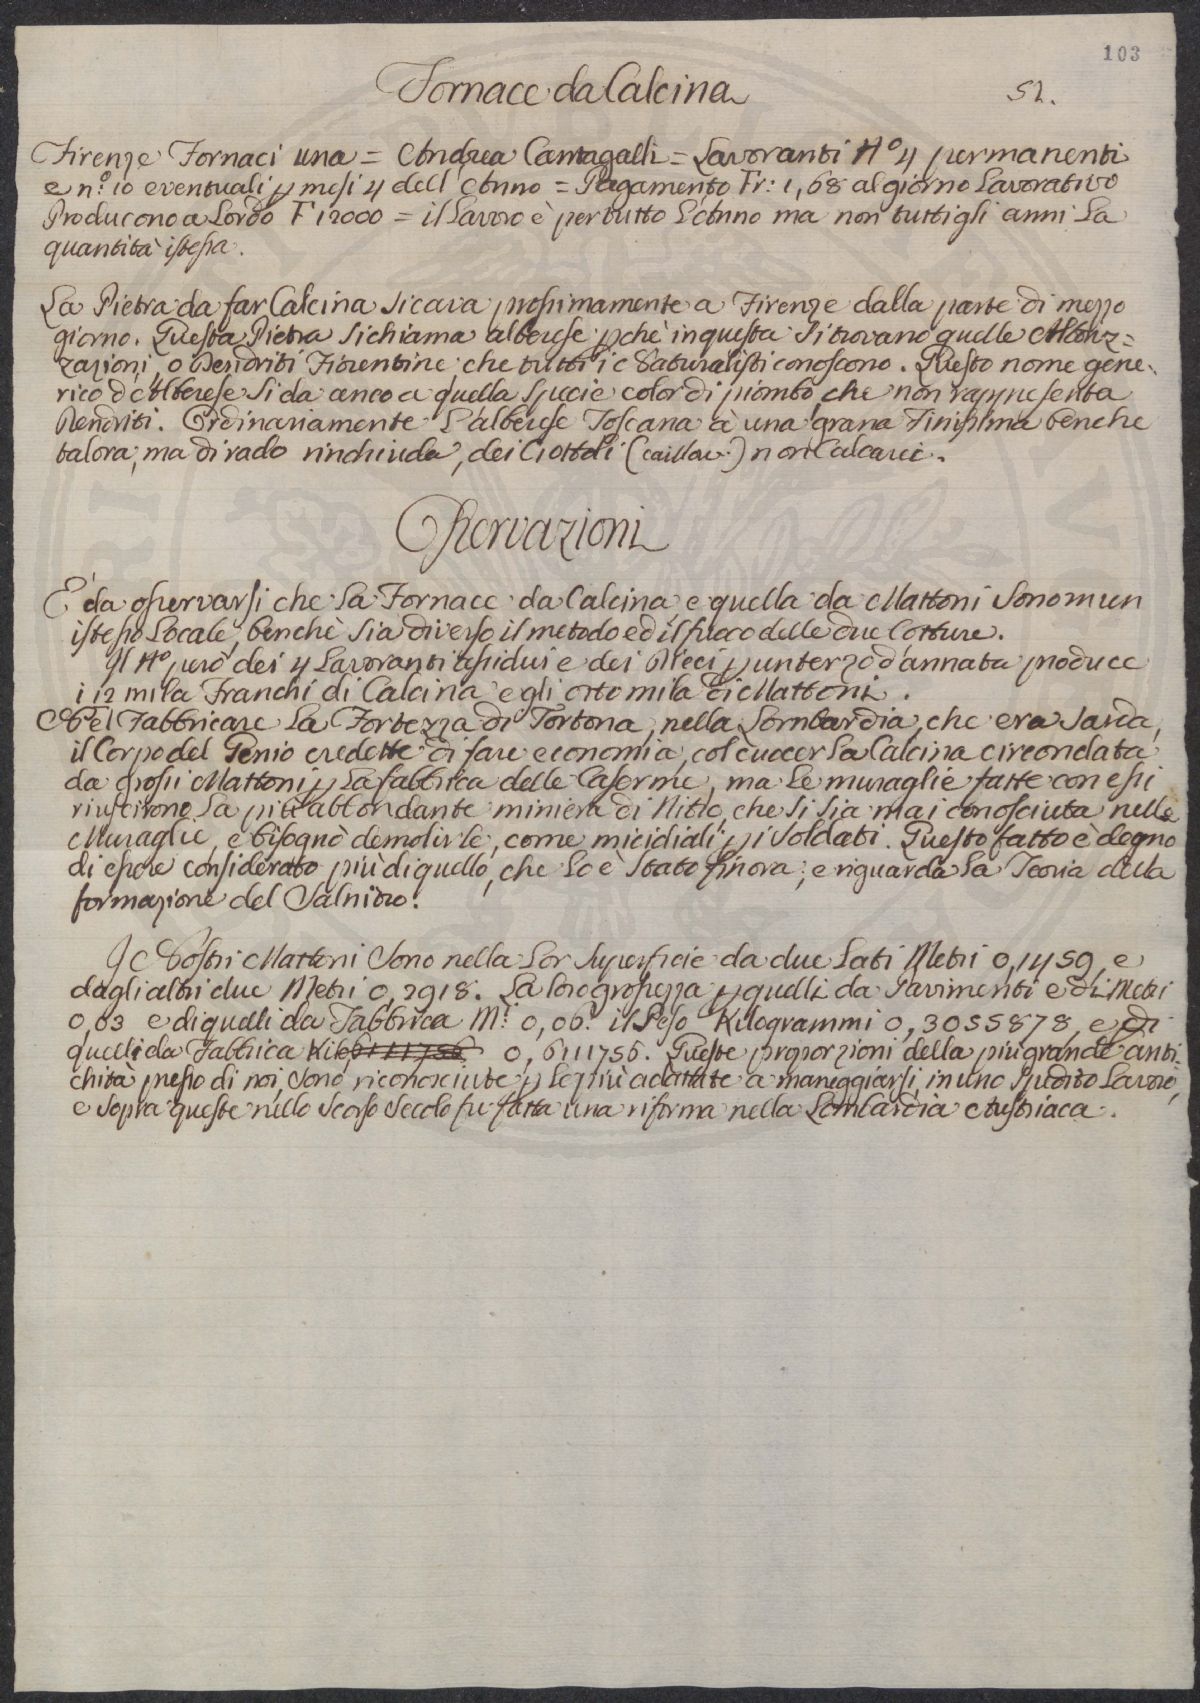 103
Fornace da Calcina
52.
Firenze Fornaci una = Andrea Cantagalli = Lavoranti N.o 4 permanenti
e n.o 10 eventuali p mesi 4 dell'Anno = Pagamento Fr: 1,68 al giorno Lavorativo
Producono a Lordo F 12000 = il Lavoro è per tutto L'Anno ma non tutti gli anni La
quantità istessa.
La Pietra da far Calcina si cava prossimamente a Firenze dalla parte di mezzo
giorno. Questa Pietra si chiama alberese pchè in questa si trovano quelle
zazioni, o Dendriti Fiorentine che tutti i Naturalisti conoscono. Questo nome gene=
rico d'Alberese si da anco a quella specie color di piombo, che non rappresenta
Dendriti. Ordinariamente L'alberese Toscana à una grana Finissima benche
talora, ma di rado rinchiuda, dei Ciottoli (caillou) non Calcarei.
Osservazioni
È da osservarsi che La Fornace da Calcina e quella da Mattoni sono in un
istesso Locale, benchè sia diverso il metodo ed il fuoco delle due Cotture.
Il N.o però dei 4 Lavoranti assidui e dei Dieci p un terzo d'annata produce
i 12 mila Franchi di Calcina e gli otto mila di Mattoni.
Nel Fabbricare La Fortezza di Tortona, nella Lombardia, che era Sarda,
il Corpo del Genio credette di fare economia, col cuocer La Calcina circondata
da grossi Mattoni p La fabbrica delle Caserme, ma Le muraglie fatte con essi
riuscirono La più abbondante miniera di Nitro, che si sia mai conosciuta nelle
Muraglie, e bisognò demolirle, come micidiali p i Soldati. Questo fatto è degno
di essere considerato più di quello, che Lo è stato finora; e riguarda La Teoria della
formazione del Salnitro.
I Nostri Mattoni sono nella Lor superficie da due Lati Metri 0,1459, e
dagli altri due Metri 0,2918. La loro grossezza p quelli da Pavimenti e di Metri
0,03 e di quelli da Fabbrica M.i 0,06. il Peso Kilogrammi 0,3055878, e di
quelli da Fabbrica Kilo 6111756 0,6111756. Queste proporzioni della più grande anti=
chità presso di noi, sono riconosciute p Le più adattate a maneggiarsi, in uno spedito Lavoro,
e sopra queste nello scorso Secolo fu fatta una riforma nella Lombardia Austriaca.